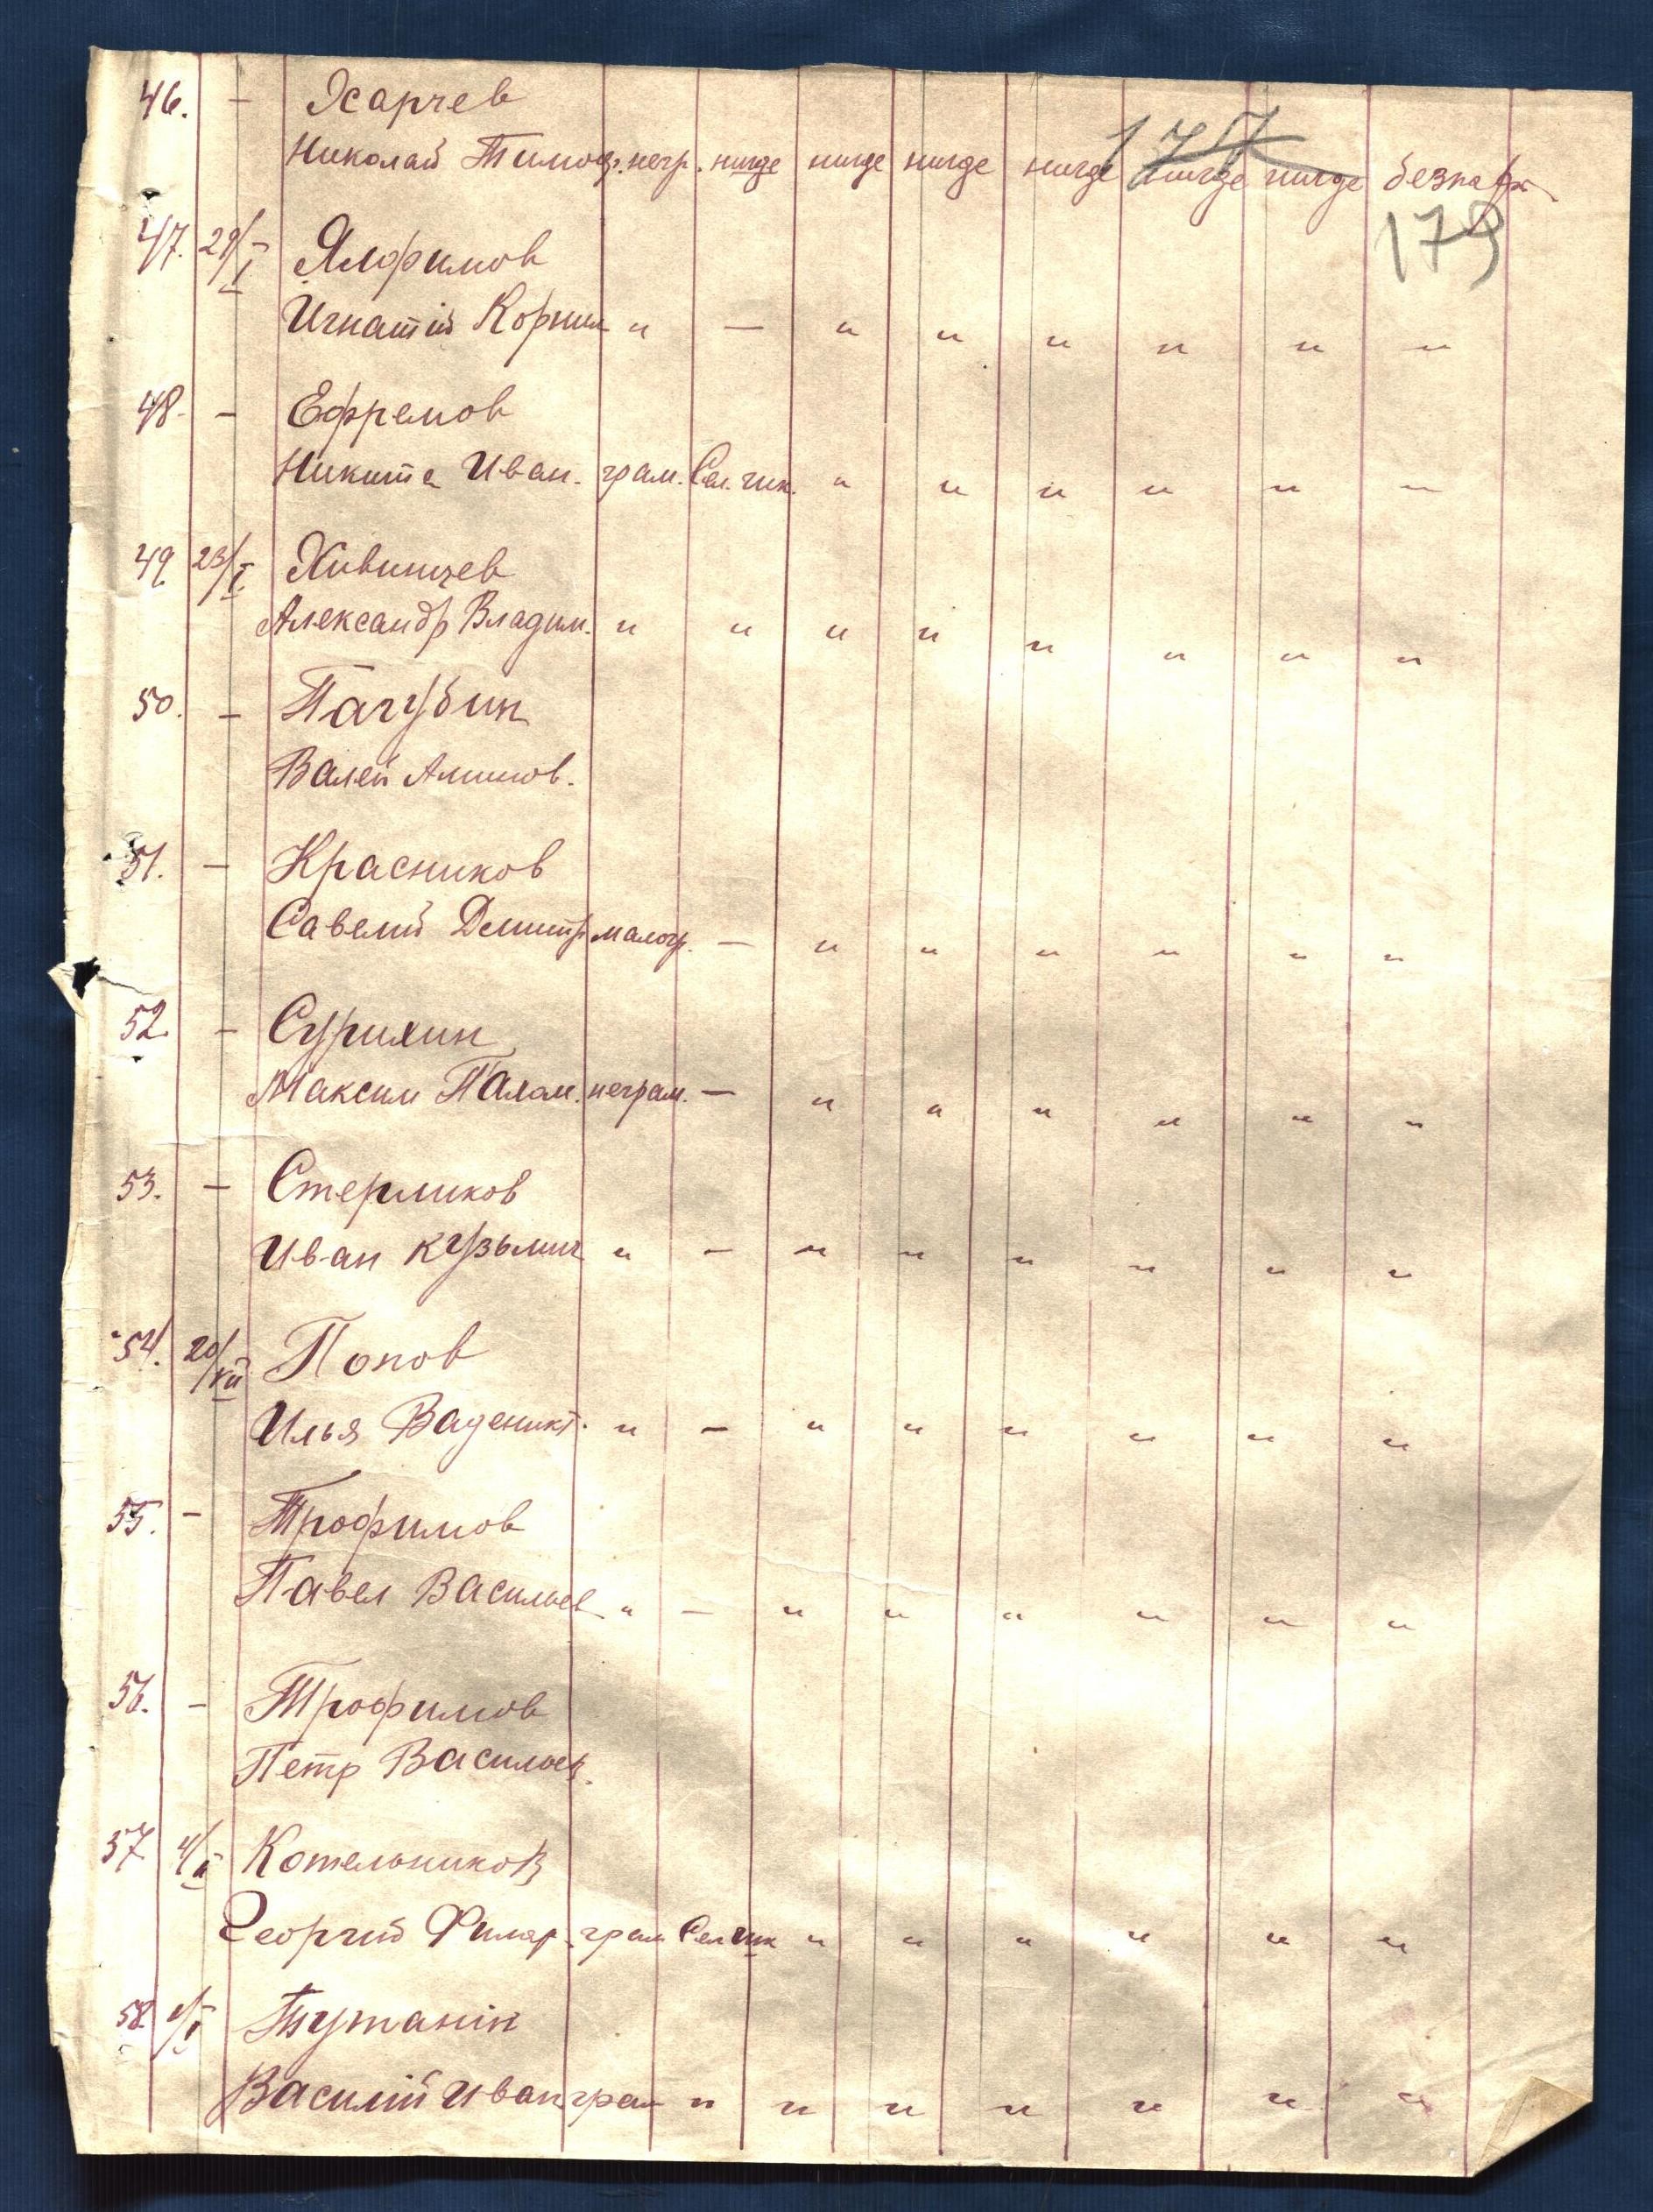 46. — Харчев
Николай Тимоф. негр. нигде нигде нигде нигде нигде нигде безпарт
157
179
47. 29/I Ялфимов
Игнатий Корнил " — " " " " " "
48. — Ефремов
Никита Иван. грам. Сел. шк. " " " " " "
49 23/I Хивинцев
Александр Владим. " " " " " " " "
50. — Пагубин
Валей Алимов.
51. — Красников
Савелий Дмитр малогр. — " " " " " "
52. — Сурикин
Максим Палам. неграм. — " " " " " "
53. — Стерликов
Иван Кузьмич " — " " " " " "
54. 20/XII Попов
Илья Ваденикт. " — " " " " " "
55. — Трофимов
Павел Васильев " — " " " " " "
56. — Трофимов
Петр Васильев.
57 4/II Котельников
Георгий Филар. грам Сел шк " " " " " "
58 Тутанін
Василій Иван грам " " " " " " "